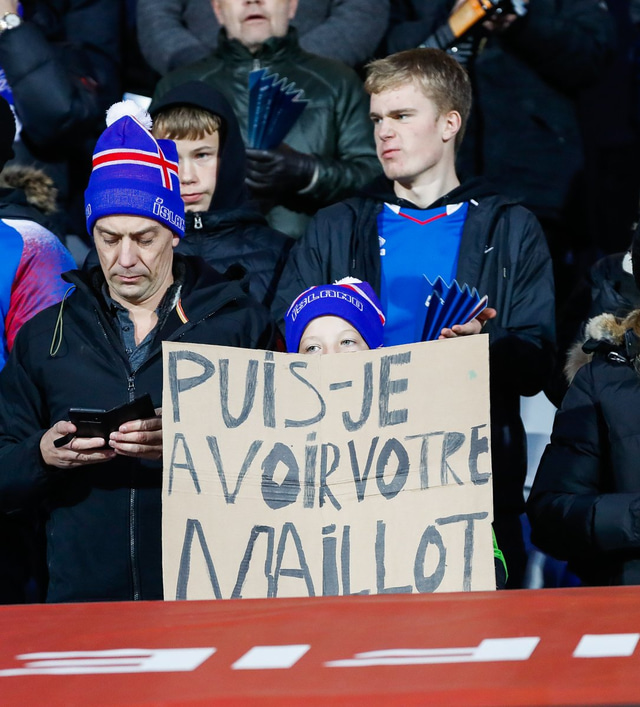 ÍSLAND
PUIS-JE
AVOIR VOTRE
MAILLOT